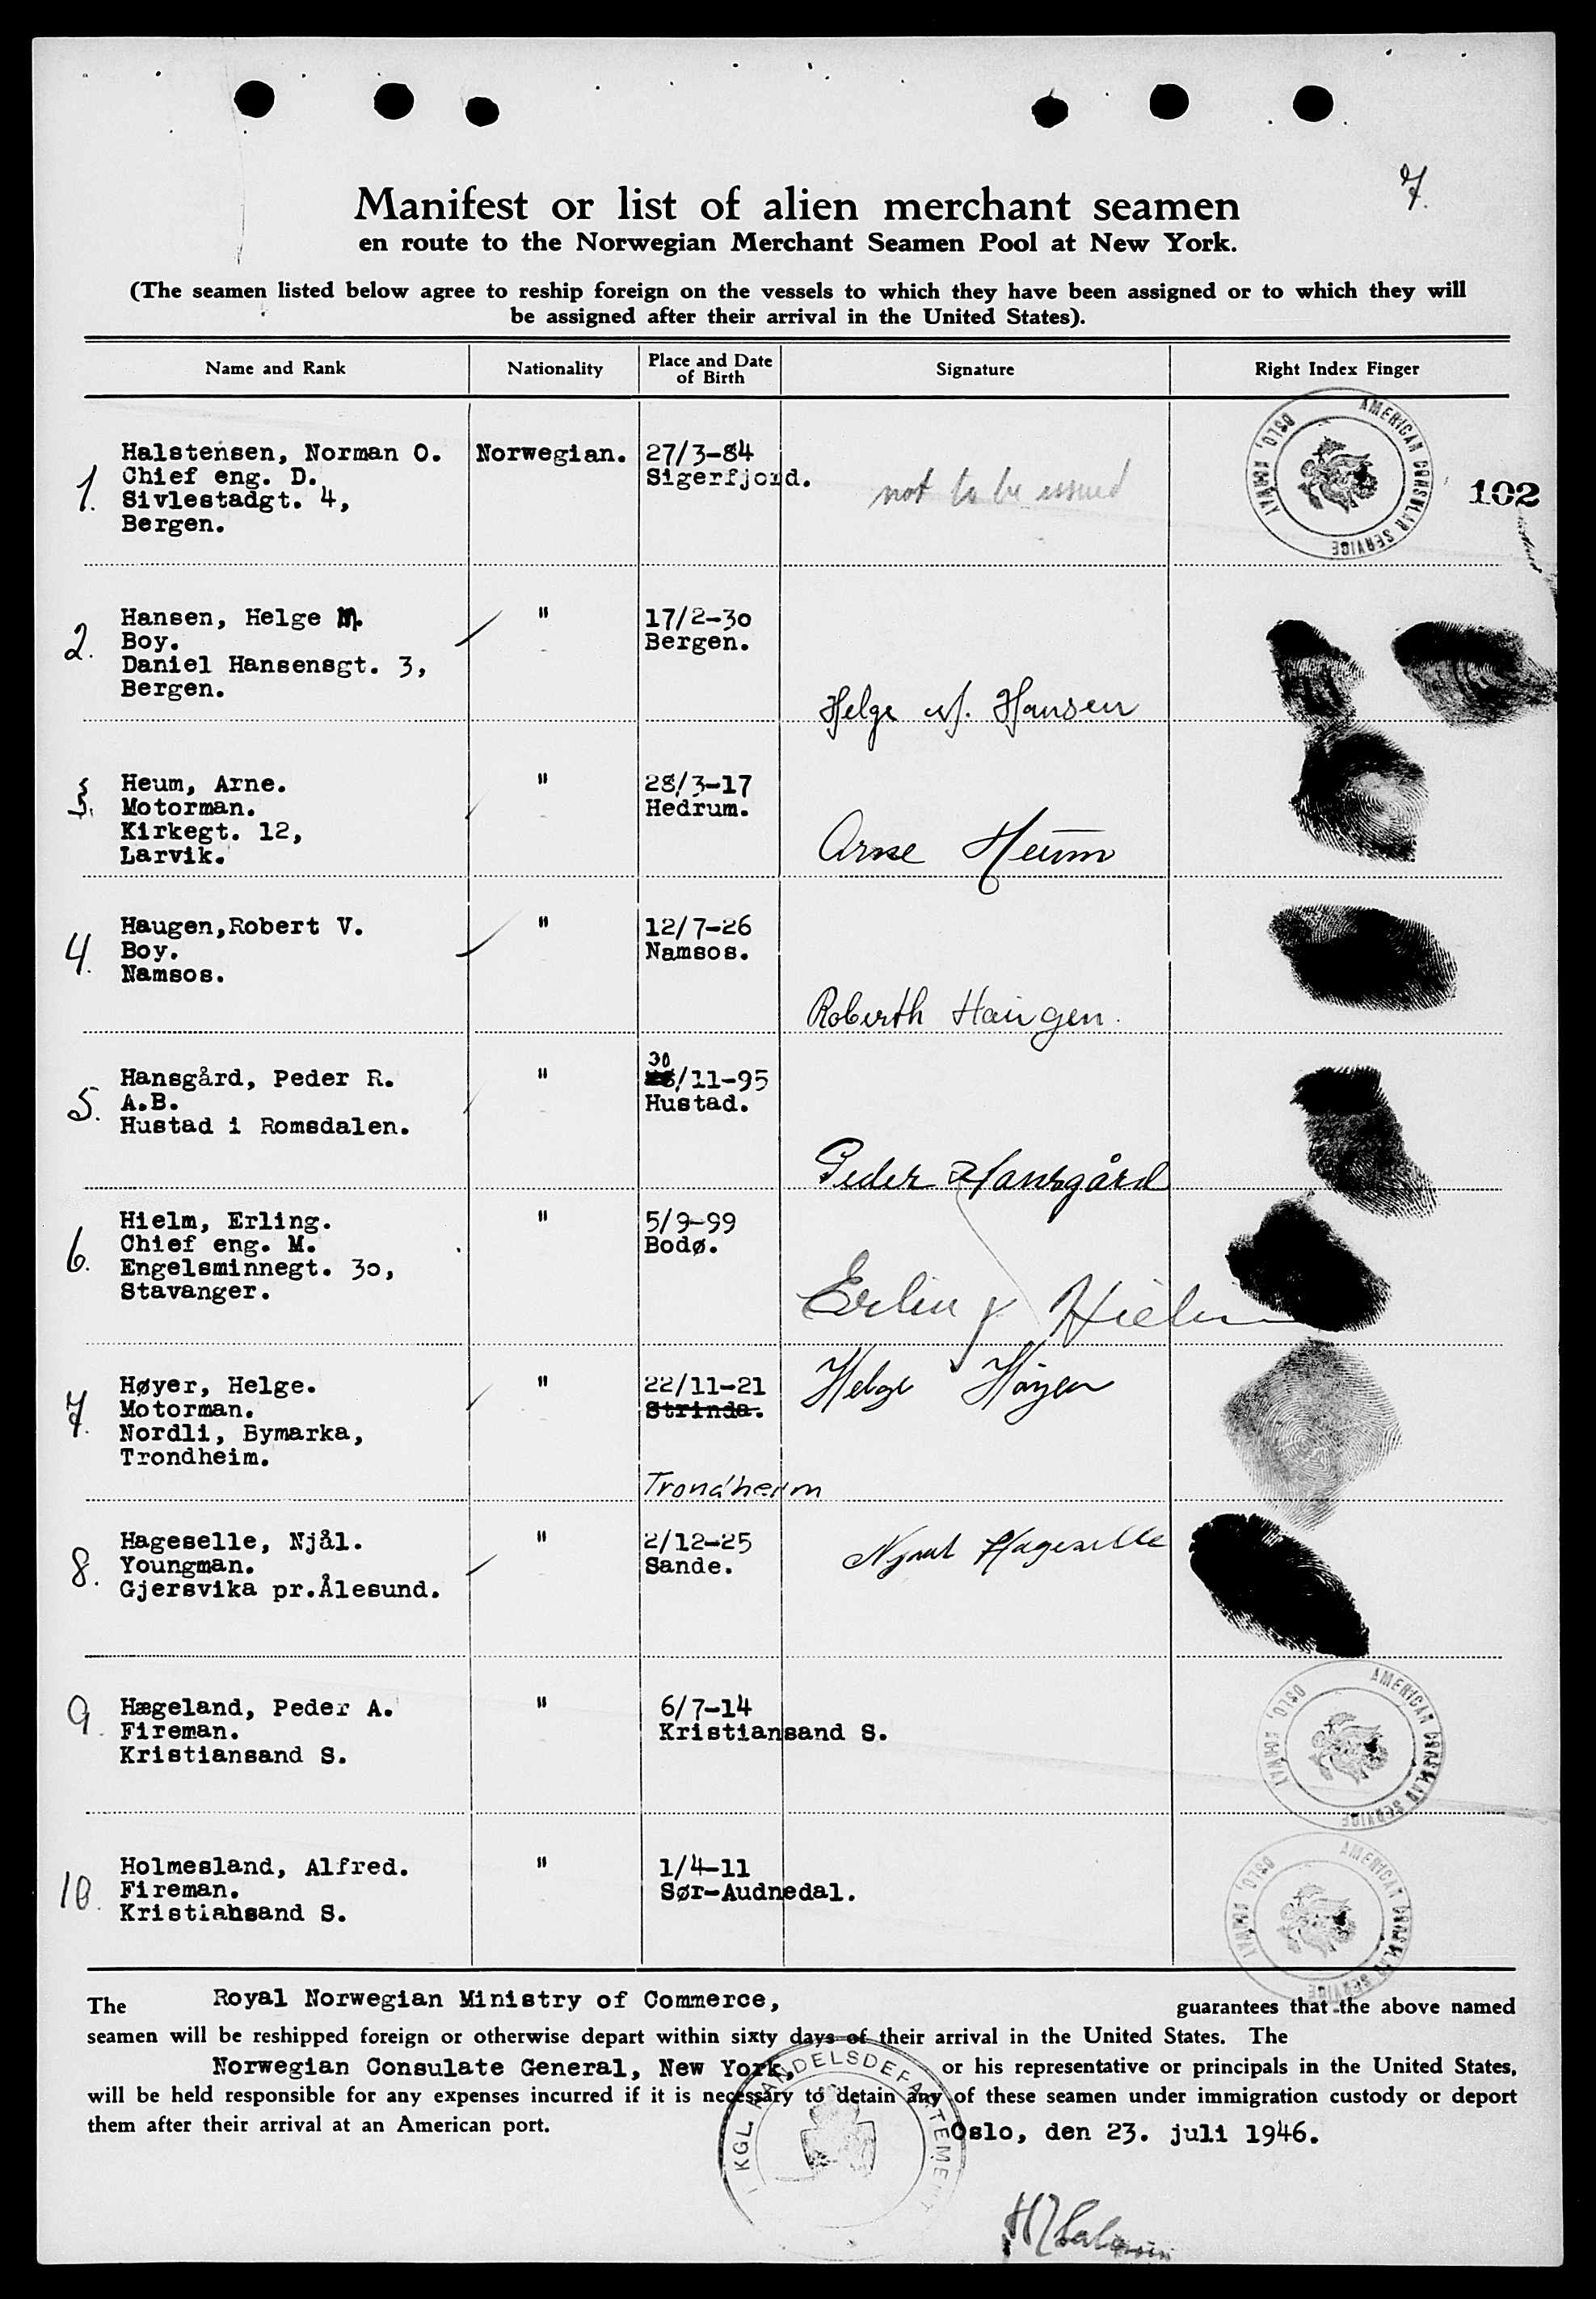 7.
Manifest or list of alien merchant seamen
en route to the Norwegian Merchant Seamen Pool at New York.
(The seamen listed below agree to reship foreign on the vessels to which they have been assigned or to which they will
be assigned after their arrival in the United States).
Name and Rank Nationality Place and Date of Birth Signature Right Index Finger
1. Halstensen, Norman O. Norwegian. 27/3-84
Chief eng. D. Sigerfjord.
Sivlestadgt. 4, not to be issued 102
Bergen.
AMERICAN CONSULAR SERVICE OSLO, NORWAY
2. Hansen, Helge M. " 17/2-30
Boy. Bergen.
Daniel Hansensgt. 3,
Bergen.
Helge M. Hansen
3. Heum, Arne. " 28/3-17
Motorman. Hedrum.
Kirkegt. 12,
Larvik.
Arne Heum
4. Haugen,Robert V. " 12/7-26
Boy. Namsos.
Namsos.
Roberth Haugen.
30
5. Hansgård, Peder R. " /11-95
A.B. Hustad.
Hustad i Romsdalen.
Peder Hansgård
6. Hielm, Erling. " 5/9-99
Chief eng. M. Bodø.
Engelsminnegt. 30,
Stavanger.
Erling Hielm
7. Høyer, Helge. " 22/11-21 Helge Höyer
Motorman. Strinda.
Nordli, Bymarka,
Trondheim.
Trondheim
8. Hageselle, Njål. " 2/12-25 Njaal Hageselle
Youngman. Sande.
Gjersvika pr.Ålesund.
9. Hægeland, Peder A. " 6/7-14
Fireman. Kristiansand S.
Kristiansand S.
AMERICAN CONSULAR SERVICE OSLO, NORWAY
10. Holmesland, Alfred. " 1/4-11
Fireman. Sør-Audnedal.
Kristiansand S.
AMERICAN CONSULAR SERVICE OSLO, NORWAY
The Royal Norwegian Ministry of Commerce, guarantees that the above named
seamen will be reshipped foreign or otherwise depart within sixty days of their arrival in the United States. The
Norwegian Consulate General, New York, or his representative or principals in the United States,
will be held responsible for any expenses incurred if it is necessary to detain any of these seamen under immigration custody or deport
them after their arrival at an American port.
Oslo, den 23. juli 1946.
KGL. HANDELSDEPARTEMENT